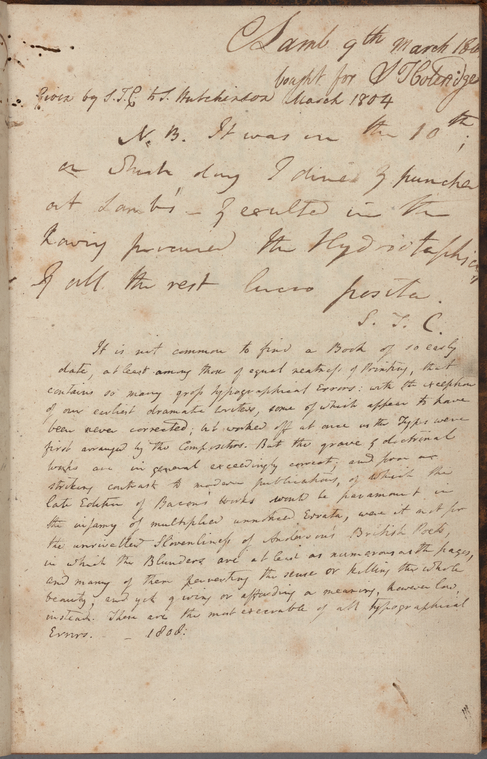 C Lamb 9th March 180
bought for S T Coleridge
Given by S.T.C. to S. Hutchinson March 1804
N.B. It was on the 10th;
on Which day I dined & punched
at Lamb's — & exulted in the
having procured the Hydriotaphia,
& all the rest lucro posita.
S. T. C.
It is not common to find a Book of so early
date, at least among those of equal neatness of Printing, that
contains so many gross typographical Errors: with the exception
of our earliest dramatic writers, some of which appear to have
been never corrected; but worked off at once as the Types were
first arranged by the Compositors. But the grave & doctrinal
works are in general exceedingly correct, and form a
striking contrast to modern publications, of which the
late Edition of Bacon's Works would be paramount in
the infamy of multiplied unnoticed Errata, were it not for
the unrivalled Slovenliness of Anderson's British Poets,
in which the Blunders are at least as numerous as the pages,
and many of them perverting the sense or killing the whole
beauty, and yet giving or affording a meaning, however low,
instead. These are the most execrable of all typographical
Errors. — 1808: